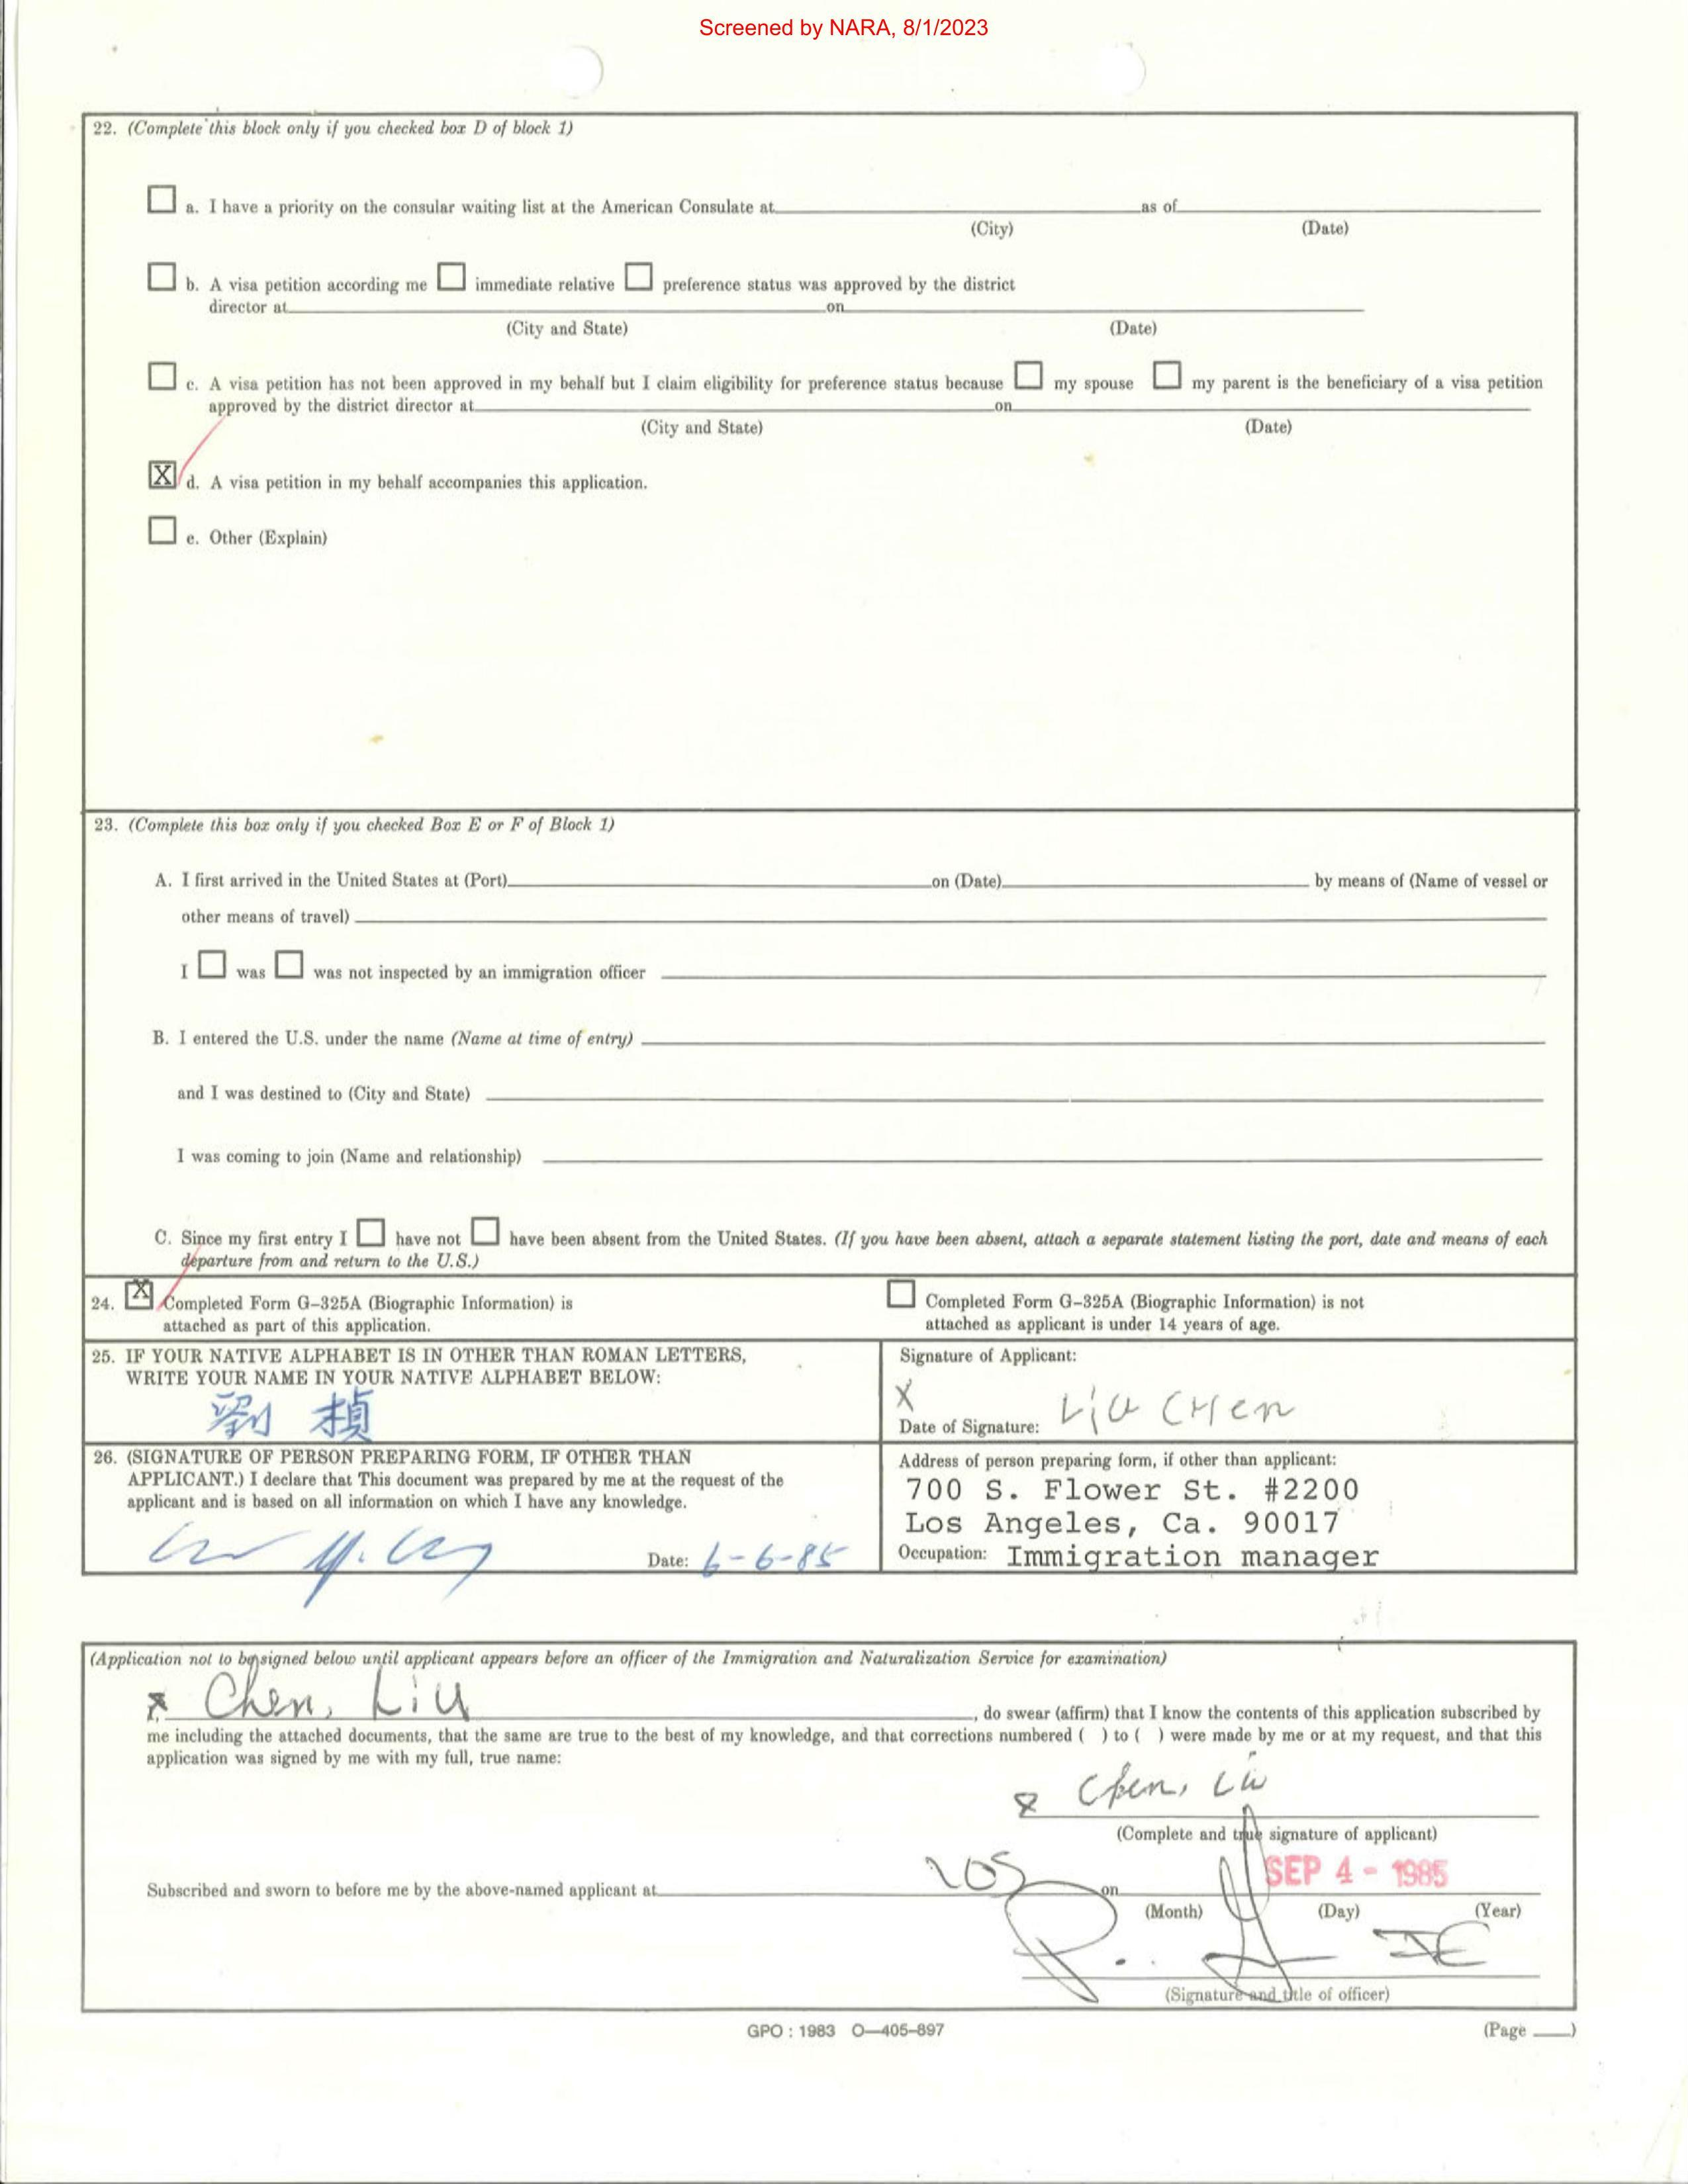 Screened by NARA, 8/1/2023
22. (Complete this block only if you checked box D of block 1)
a. I have a priority on the consular waiting list at the American Consulate at as of
(City) (Date)
b. A visa petition according me immediate relative preference status was approved by the district
director at on
(City and State) (Date)
c. A visa petition has not been approved in my behalf but I claim eligibility for preference status because my spouse my parent is the beneficiary of a visa petition
approved by the district director at on
(City and State) (Date)
X d. A visa petition in my behalf accompanies this application.
e. Other (Explain)
23. (Complete this box only if you checked Box E or F of Block 1)
A. I first arrived in the United States at (Port) on (Date) by means of (Name of vessel or
other means of travel)
I was was not inspected by an immigration officer
B. I entered the U.S. under the name (Name at time of entry)
and I was destined to (City and State)
I was coming to join (Name and relationship)
C. Since my first entry I have not have been absent from the United States. (If you have been absent, attach a separate statement listing the port, date and means of each
departure from and return to the U.S.)
24. X Completed Form G-325A (Biographic Information) is
attached as part of this application.
Completed Form G-325A (Biographic Information) is not
attached as applicant is under 14 years of age.
25. IF YOUR NATIVE ALPHABET IS IN OTHER THAN ROMAN LETTERS,
WRITE YOUR NAME IN YOUR NATIVE ALPHABET BELOW:
劉 楨
Signature of Applicant:
X Liu CHen
Date of Signature:
26. (SIGNATURE OF PERSON PREPARING FORM, IF OTHER THAN
APPLICANT.) I declare that This document was prepared by me at the request of the
applicant and is based on all information on which I have any knowledge.
Date: 6-6-85
Address of person preparing form, if other than applicant:
700 S. Flower St. #2200
Los Angeles, Ca. 90017
Occupation: Immigration manager
(Application not to be signed below until applicant appears before an officer of the Immigration and Naturalization Service for examination)
x I, Chen, Liu , do swear (affirm) that I know the contents of this application subscribed by
me including the attached documents, that the same are true to the best of my knowledge, and that corrections numbered ( ) to ( ) were made by me or at my request, and that this
application was signed by me with my full, true name:
x Chen, Liu
(Complete and true signature of applicant)
Subscribed and sworn to before me by the above-named applicant at LOS on SEP 4 - 1985
(Month) (Day) (Year)
(Signature and title of officer)
GPO : 1983 O—405-897
(Page )